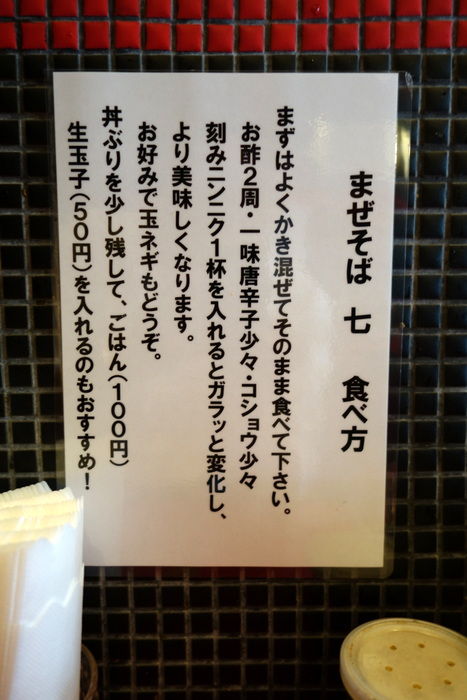 まぜそば 七 食べ方
まずはよくかき混ぜてそのまま食べて下さい。
お酢2周・一味唐辛子少々・コショウ少々
刻みニンニク1杯を入れるとガラッと変化し、
より美味しくなります。
お好みで玉ネギもどうぞ。
丼ぶりを少し残して、ごはん(100円)
生玉子(50円)を入れるのもおすすめ!